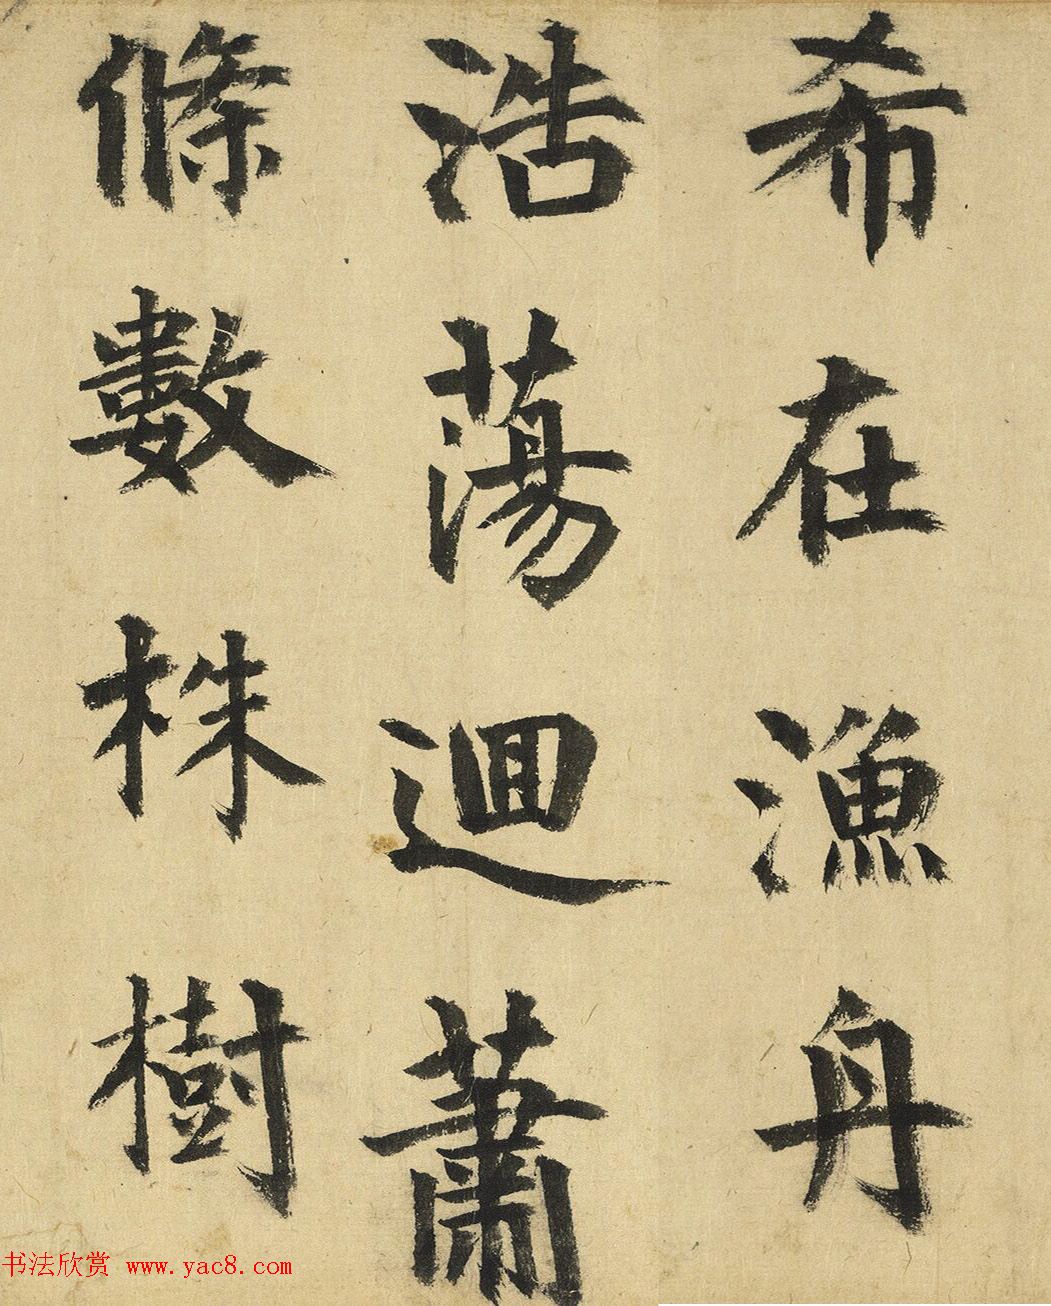 希在漁舟
浩蕩迴蕭
條數株樹
书法欣赏 www.yac8.com